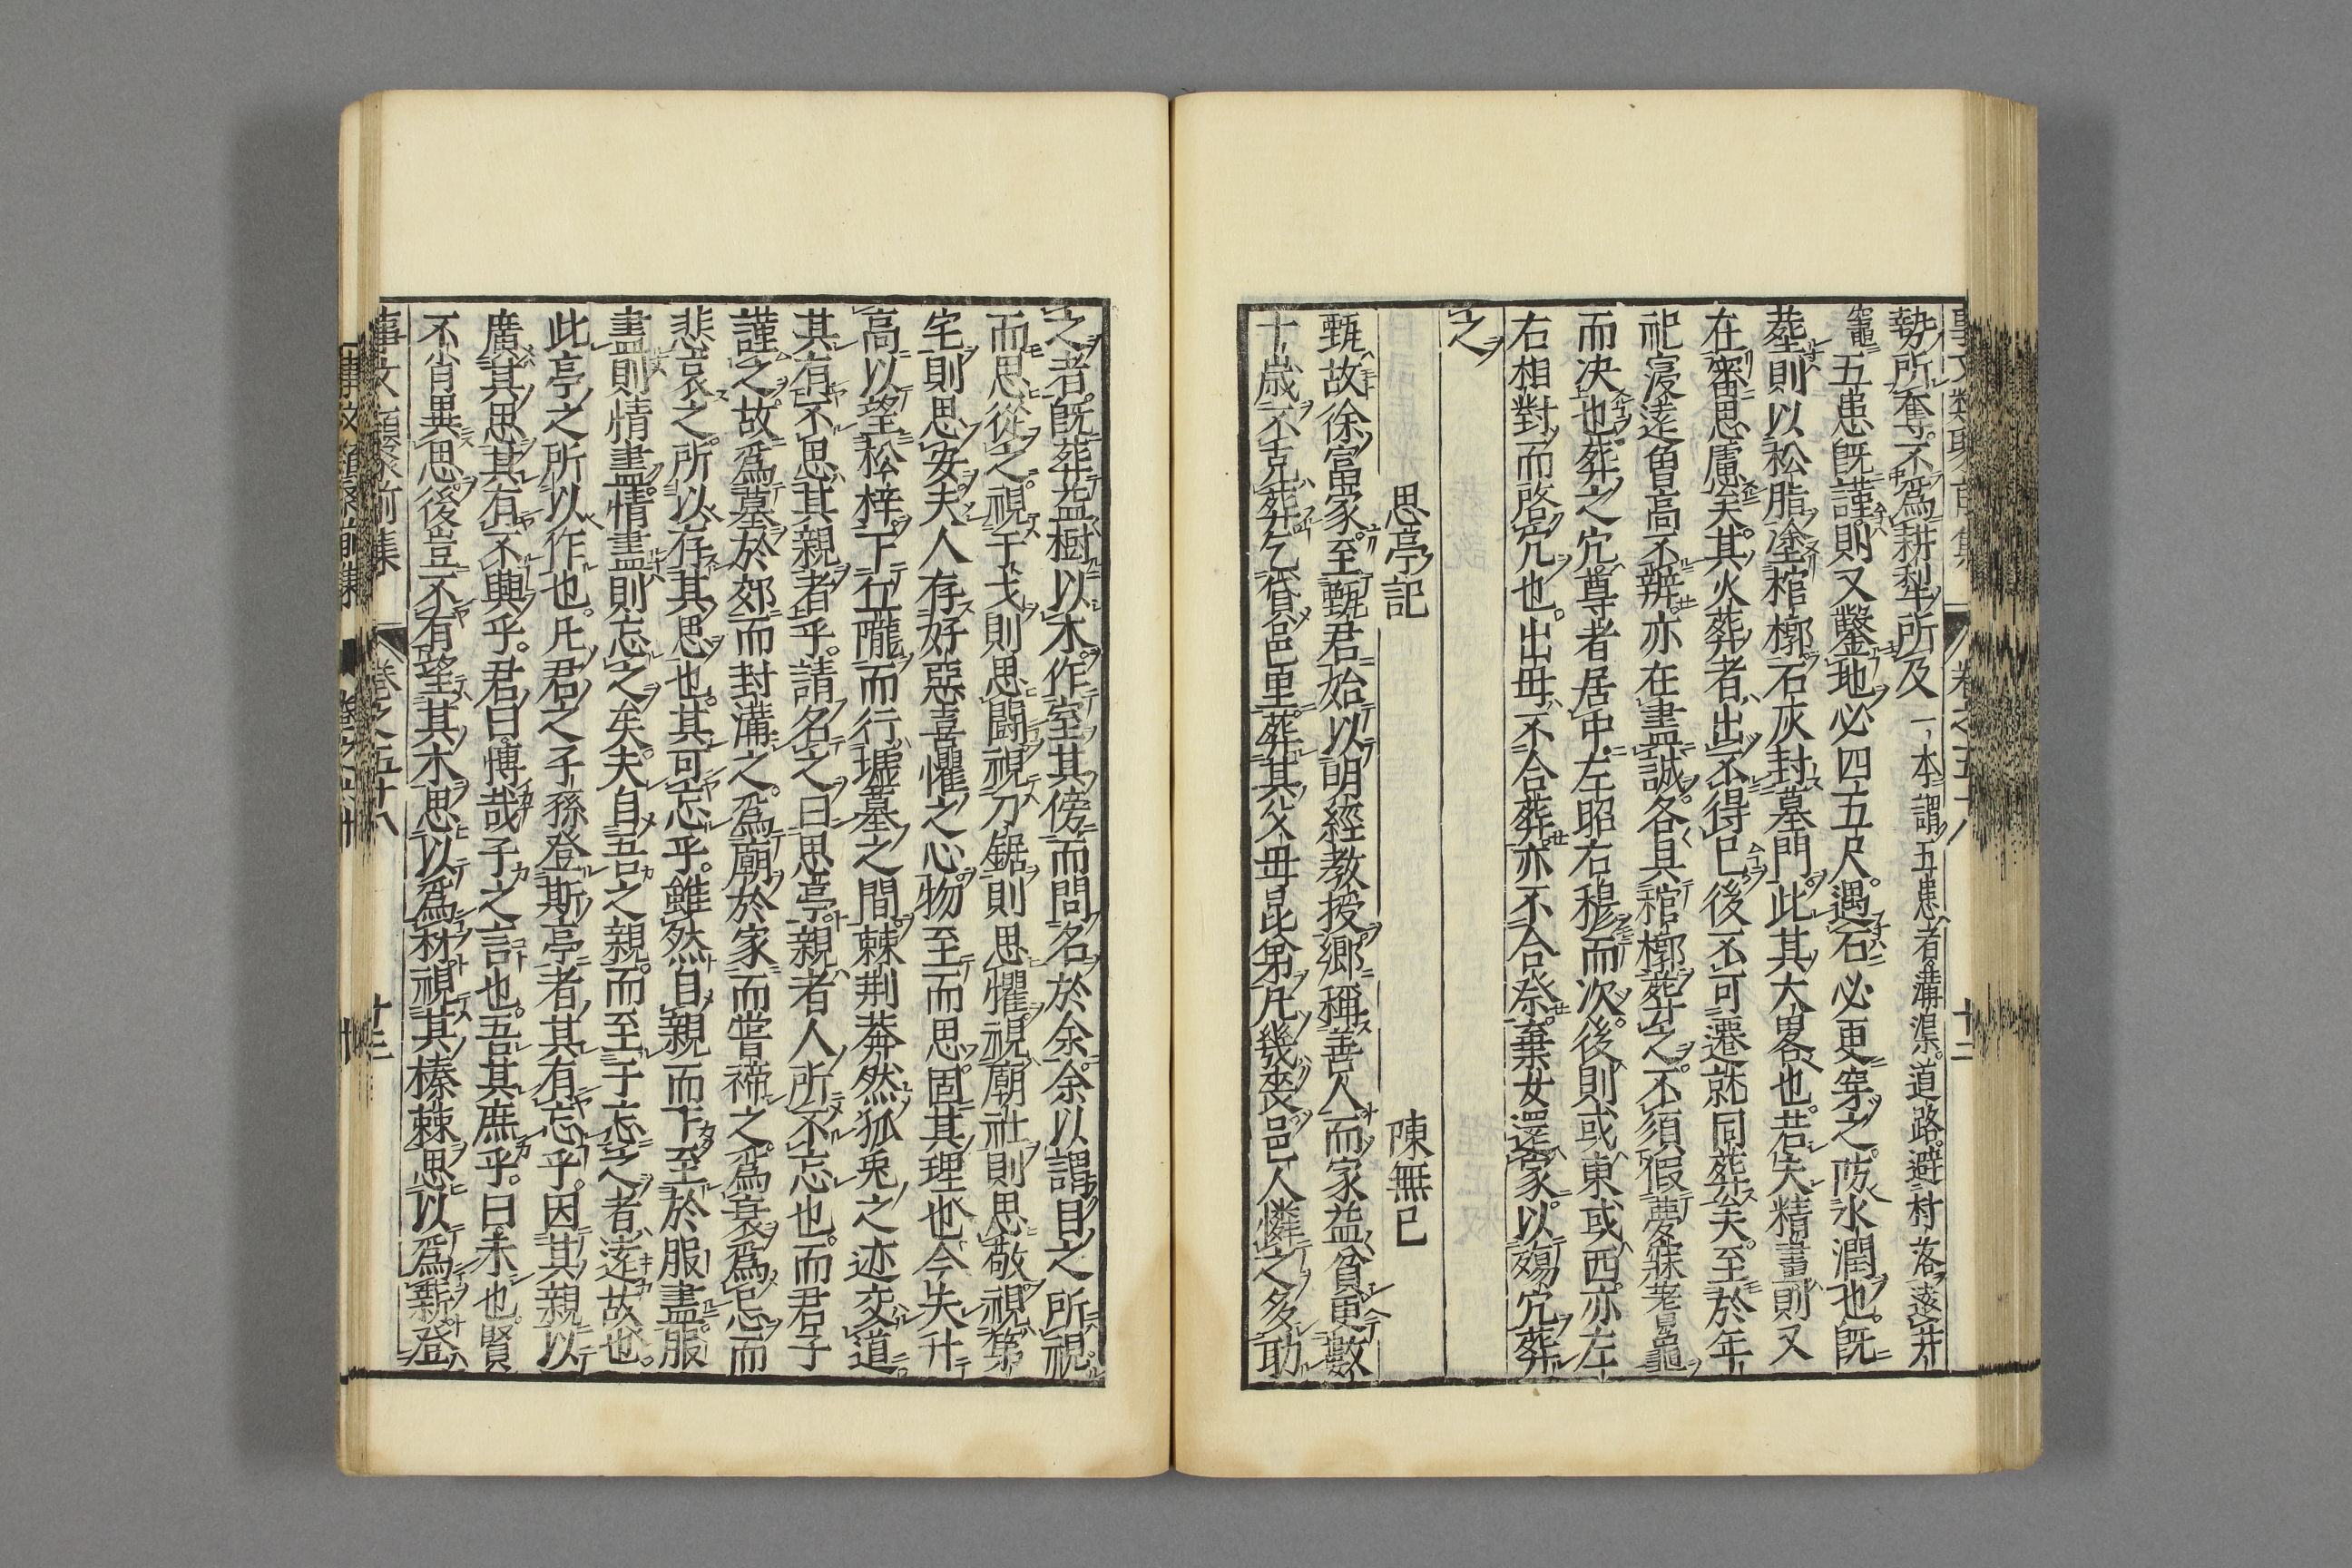 勢所奪不爲耕犁所及一本謂五患者溝渠道路避村落遠井
竈五患旣謹則又鑿地必四五尺遇石必更穿之防水潤也旣
葬則以松脂塗棺槨石灰封墓門此其大畧也若夫精畫則又
在審思慮矣其火葬者出不得已後不可遷就同葬矣至於年
祀寖遠曾高不辨亦在盡誠各具棺槨葬之不須假夢寐蓍龜
而决也葬之穴尊者居中左昭右穆而次後則或東或西亦左
右相對而啓穴也出母不合葬亦不合祭棄女還家以殤穴葬
之
思亭記 陳無已
甄故徐富家至甄君始以明經教授鄉稱善人而家益貧更數
十歲不克葬乞貸邑里葬其父母昆弟凡幾喪邑人憐之多助
之者旣葬益樹以木作室其傍而問名於余余以謂目之所視
而思從之視干戈則思鬪視刀鋸則思懼視廟社則思敬視第
宅則思安夫人存好惡喜懼之心物至而思固其理也今夫升
高以望松梓下丘隴而行墟墓之間棘荆莽然狐兎之迹交道
其有不思其親者乎請名之曰思亭親者人所不忘也而君子
謹之故爲墓於郊而封溝之爲廟於家而嘗禘之爲衰爲忌而
悲哀之所以存其思也其可忘乎雖然自親而下至於服盡服
盡則情盡情盡則忘之矣夫自吾之親而至于忘之者遠故也
此亭之所以作也凡君之子孫登斯亭者其有忘乎因其親以
廣其思其有不興乎君曰博哉子之言也吾其庶乎曰未也賢
不肖異思後豈不有望其木思以爲材視其榛棘思以爲薪登
事文類聚前集 卷之五十八 十三